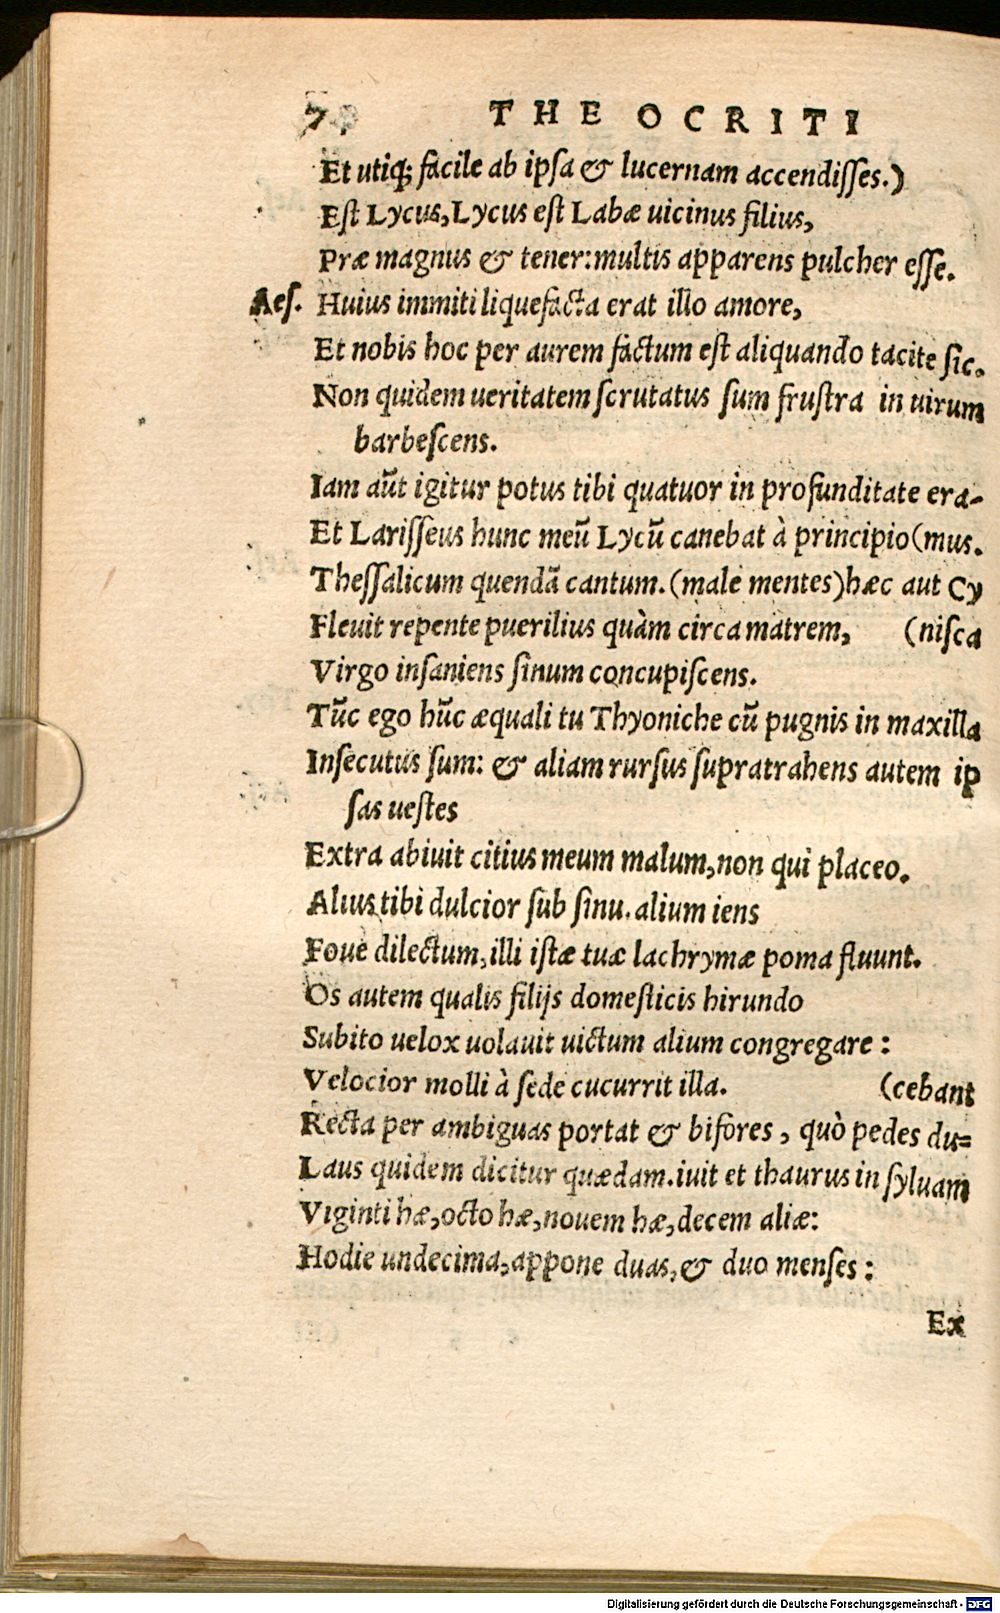 THEOCRITI
Et utiq; facile ab ipſa & lucernam accendiſſes.)
Eſt Lycus, Lycus eſt Labæ uicinus filius,
Præ magnus & tener: multis apparens pulcher eſſe.
Aeſ. Huius immiti liquefacta erat illo amore,
Et nobis hoc per aurem factum eſt aliquando tacite ſic.
Non quidem ueritatem ſcrutatus ſum fruſtra in uirum
barbeſcens.
Iam aūt igitur potus tibi quatuor in profunditate era-
Et Lariſſeus hunc meū Lycū canebat à principio (mus.
Theſſalicum quendā cantum. (male mentes) hæc aut Cy
Fleuit repente puerilius quàm circa matrem, (niſca
Virgo inſaniens ſinum concupiſcens.
Tūc ego hūc æquali tu Thyoniche cū pugnis in maxilla
Inſecutus ſum: & aliam rurſus ſupratrahens autem ip
ſas ueſtes
Extra abiuit citius meum malum, non qui placeo.
Alius tibi dulcior ſub ſinu. alium iens
Foue dilectum, illi iſtæ tuæ lachrymæ poma fluunt.
Os autem qualis filijs domeſticis hirundo
Subito uelox uolauit uictum alium congregare:
Velocior molli à ſede cucurrit illa. (cebant
Recta per ambiguas portat & bifores, quò pedes du=
Laus quidem dicitur quædam. iuit et thaurus in ſyluam
Viginti hæ, octo hæ, nouem hæ, decem aliæ:
Hodie undecima, appone duas, & duo menſes:
Ex
Digitalisierung gefördert durch die Deutsche Forschungsgemeinschaft - DFG